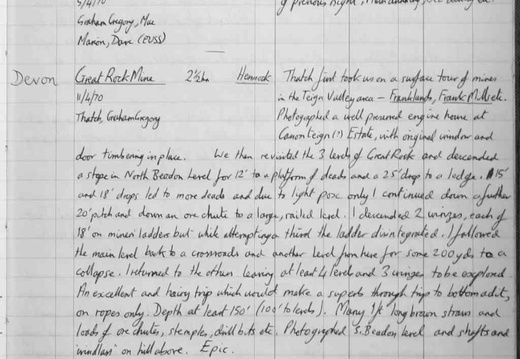 5/4/70
of previous night,
Graham Gregory, Mac
Marion, Dave (EUSS)
Devon Great Rock Mine 2½hr Hennock Thatch first took us on a surface tour of mines
11/4/70 in the Teign Valley area – Franklands, Frank Mills etc.
Thatch, Graham Gregory Photographed a well preserved engine house at
Canonteign (?) Estate, with original window and
door timbering in place. We then revisited the 3 levels of Great Rock and descended
a stope in North Beadon Level for 12' to a platform of deads and a 25' drop to a ledge. 15'
and 18' drops led to more deads and due to light pox only I continued down a further
20' pitch and down an ore chute to a large, railed level. I descended 2 winzes, each of
18' on miners ladders but while attempting a third the ladder disintegrated. I followed
the main level back to a crossroads and another level from here for some 200 yds to a
collapse. I returned to the others leaving at least 4 levels and 3 winzes to be explored.
An excellent and hairy trip which would make a superb through trip to bottom adit,
on ropes only. Depth at least 150' (100' to levels). Many 1½' long brown straws and
loads of ore chutes, stemples, drill bits etc. Photographed S. Beadon level and shafts and
windlass on hill above. Epic.